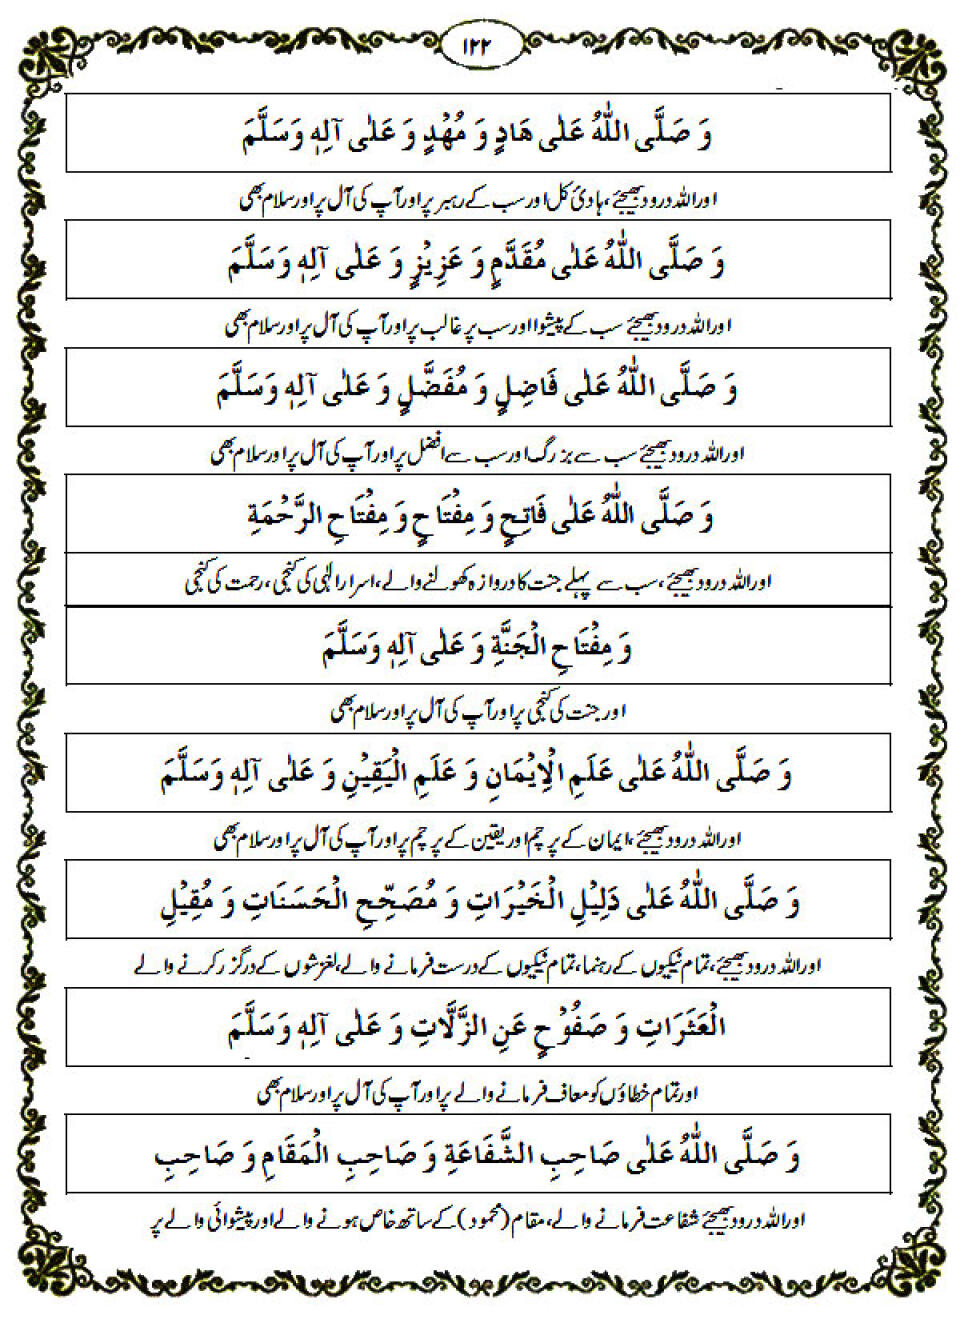 ۱۲۲
وَ صَلَّی اللّٰهُ عَلٰی هَادٍ وَ مُهْدٍ وَ عَلٰی آلِهٖ وَسَلَّمَ
اور اللہ درود بھیجئے، ہادئ کل اور سب کے رہبر پر اور آپ کی آل پر اور سلام بھی
وَ صَلَّی اللّٰهُ عَلٰی مُقَدَّمٍ وَ عَزِیْزٍ وَ عَلٰی آلِهٖ وَسَلَّمَ
اور اللہ درود بھیجئے سب کے پیشوا اور سب پر غالب پر اور آپ کی آل پر اور سلام بھی
وَ صَلَّی اللّٰهُ عَلٰی فَاضِلٍ وَ مُفَضَّلٍ وَ عَلٰی آلِهٖ وَسَلَّمَ
اور اللہ درود بھیجئے سب سے بزرگ اور سب سے افضل پر اور آپ کی آل پر اور سلام بھی
وَ صَلَّی اللّٰهُ عَلٰی فَاتِحٍ وَ مِفْتَاحٍ وَ مِفْتَاحِ الرَّحْمَةِ
اور اللہ درود بھیجئے، سب سے پہلے جنت کا دروازہ کھولنے والے، اسرار الٰہی کی کنجی، رحمت کی کنجی
وَ مِفْتَاحِ الْجَنَّةِ وَ عَلٰی آلِهٖ وَسَلَّمَ
اور جنت کی کنجی پر اور آپ کی آل پر اور سلام بھی
وَ صَلَّی اللّٰهُ عَلٰی عَلَمِ الْاِیْمَانِ وَ عَلَمِ الْیَقِیْنِ وَ عَلٰی آلِهٖ وَسَلَّمَ
اور اللہ درود بھیجئے، ایمان کے پرچم اور یقین کے پرچم پر اور آپ کی آل پر اور سلام بھی
وَ صَلَّی اللّٰهُ عَلٰی دَلِیْلِ الْخَیْرَاتِ وَ مُصَحِّحِ الْحَسَنَاتِ وَ مُقِیْلِ
اور اللہ درود بھیجئے، تمام نیکیوں کے رہنما، تمام نیکیوں کے درست فرمانے والے، لغزشوں کے درگزر کرنے والے
الْعَثَرَاتِ وَ صَفُوْحٍ عَنِ الزَّلَّاتِ وَ عَلٰی آلِهٖ وَسَلَّمَ
اور تمام خطاؤں کو معاف فرمانے والے پر اور آپ کی آل پر اور سلام بھی
وَ صَلَّی اللّٰهُ عَلٰی صَاحِبِ الشَّفَاعَةِ وَ صَاحِبِ الْمَقَامِ وَ صَاحِبِ
اور اللہ درود بھیجئے شفاعت فرمانے والے، مقام (محمود) کے ساتھ خاص ہونے والے اور پیشوائی والے پر